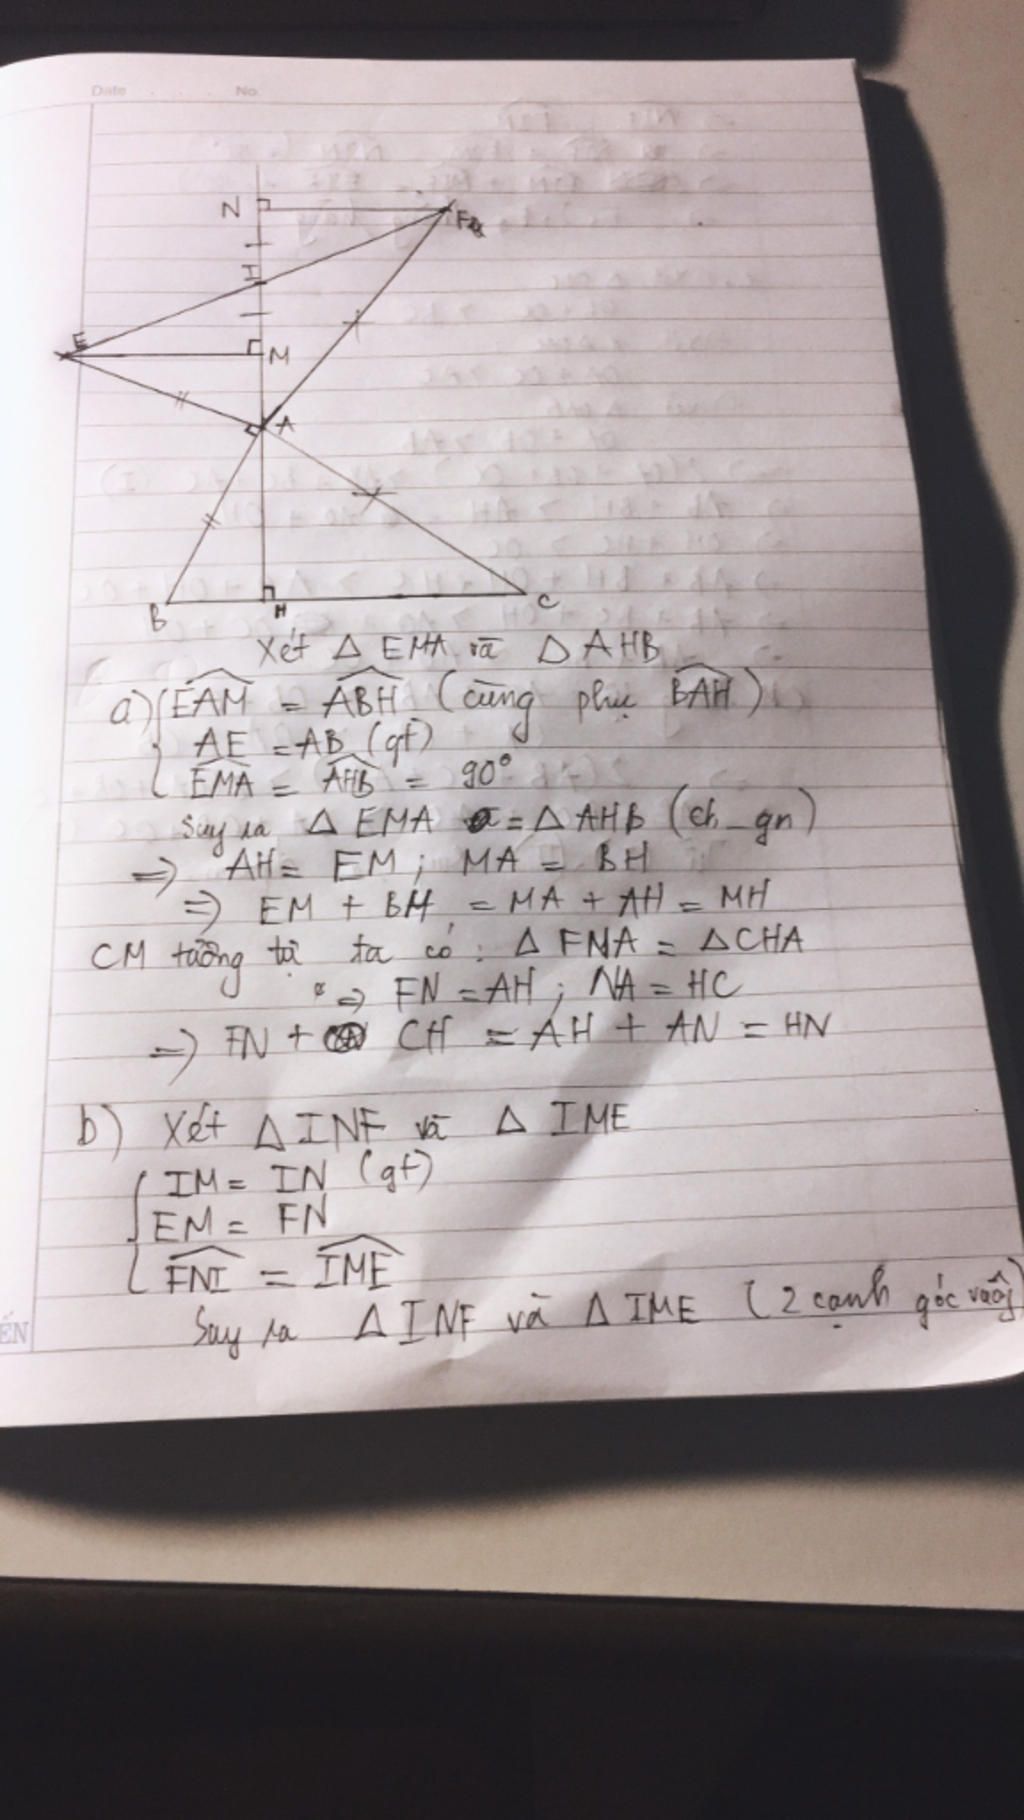 Date No.
N
F
I
E
M
A
B
H
C
Xét Δ EMA và Δ AHB
a) EAM = ABH (cùng phụ BAH)
AE = AB (gt)
EMA = AHB = 90°
Suy ra Δ EMA = Δ AHB (ch_gn)
=> AH = EM ; MA = BH
=> EM + BH = MA + AH = MH
CM tương tự ta có : Δ FNA = Δ CHA
=> FN = AH ; NA = HC
=> FN + CH = AH + AN = HN
b) Xét Δ INF và Δ IME
IM = IN (gt)
EM = FN
FNI = IME
Suy ra Δ INF và Δ IME (2 cạnh góc vuông)
ẾN